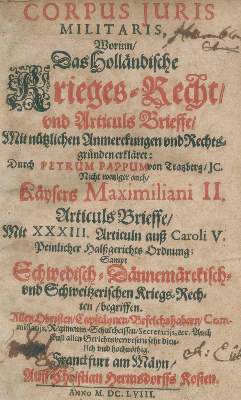 CORPUS JURIS
MILITARIS,
Worinn/
Das Holländische
Krieges-Recht/
und Articuls Brieffe/
Mit nützlichen Anmerckungen und Rechts-
gründen erkläret:
Durch PETRUM PAPPUM von Tratzberg/JC.
Nicht weniger auch/
Käysers Maximiliani II.
Articuls Brieffe/
Mit XXXIII. Articuln auß Caroli V.
Peinlicher Halßgerichts Ordnung:
Sampt
Schwedisch-Dännemärckisch-
und Schweitzerischen Kriegs-Rech-
ten/ begriffen.
Allen Obristen/Capitäynen/Befelchshabern/Com-
missarijs, Regiments-Schultheissen/Secretarijs,&c. Auch
sonst allen Gerichtsverwesern sehr dien-
lich und hochnöhtig.
Franckfurt am Mäyn/
Auff Christian Hermsdorffs Kosten.
ANNO M. DC. LVIII.